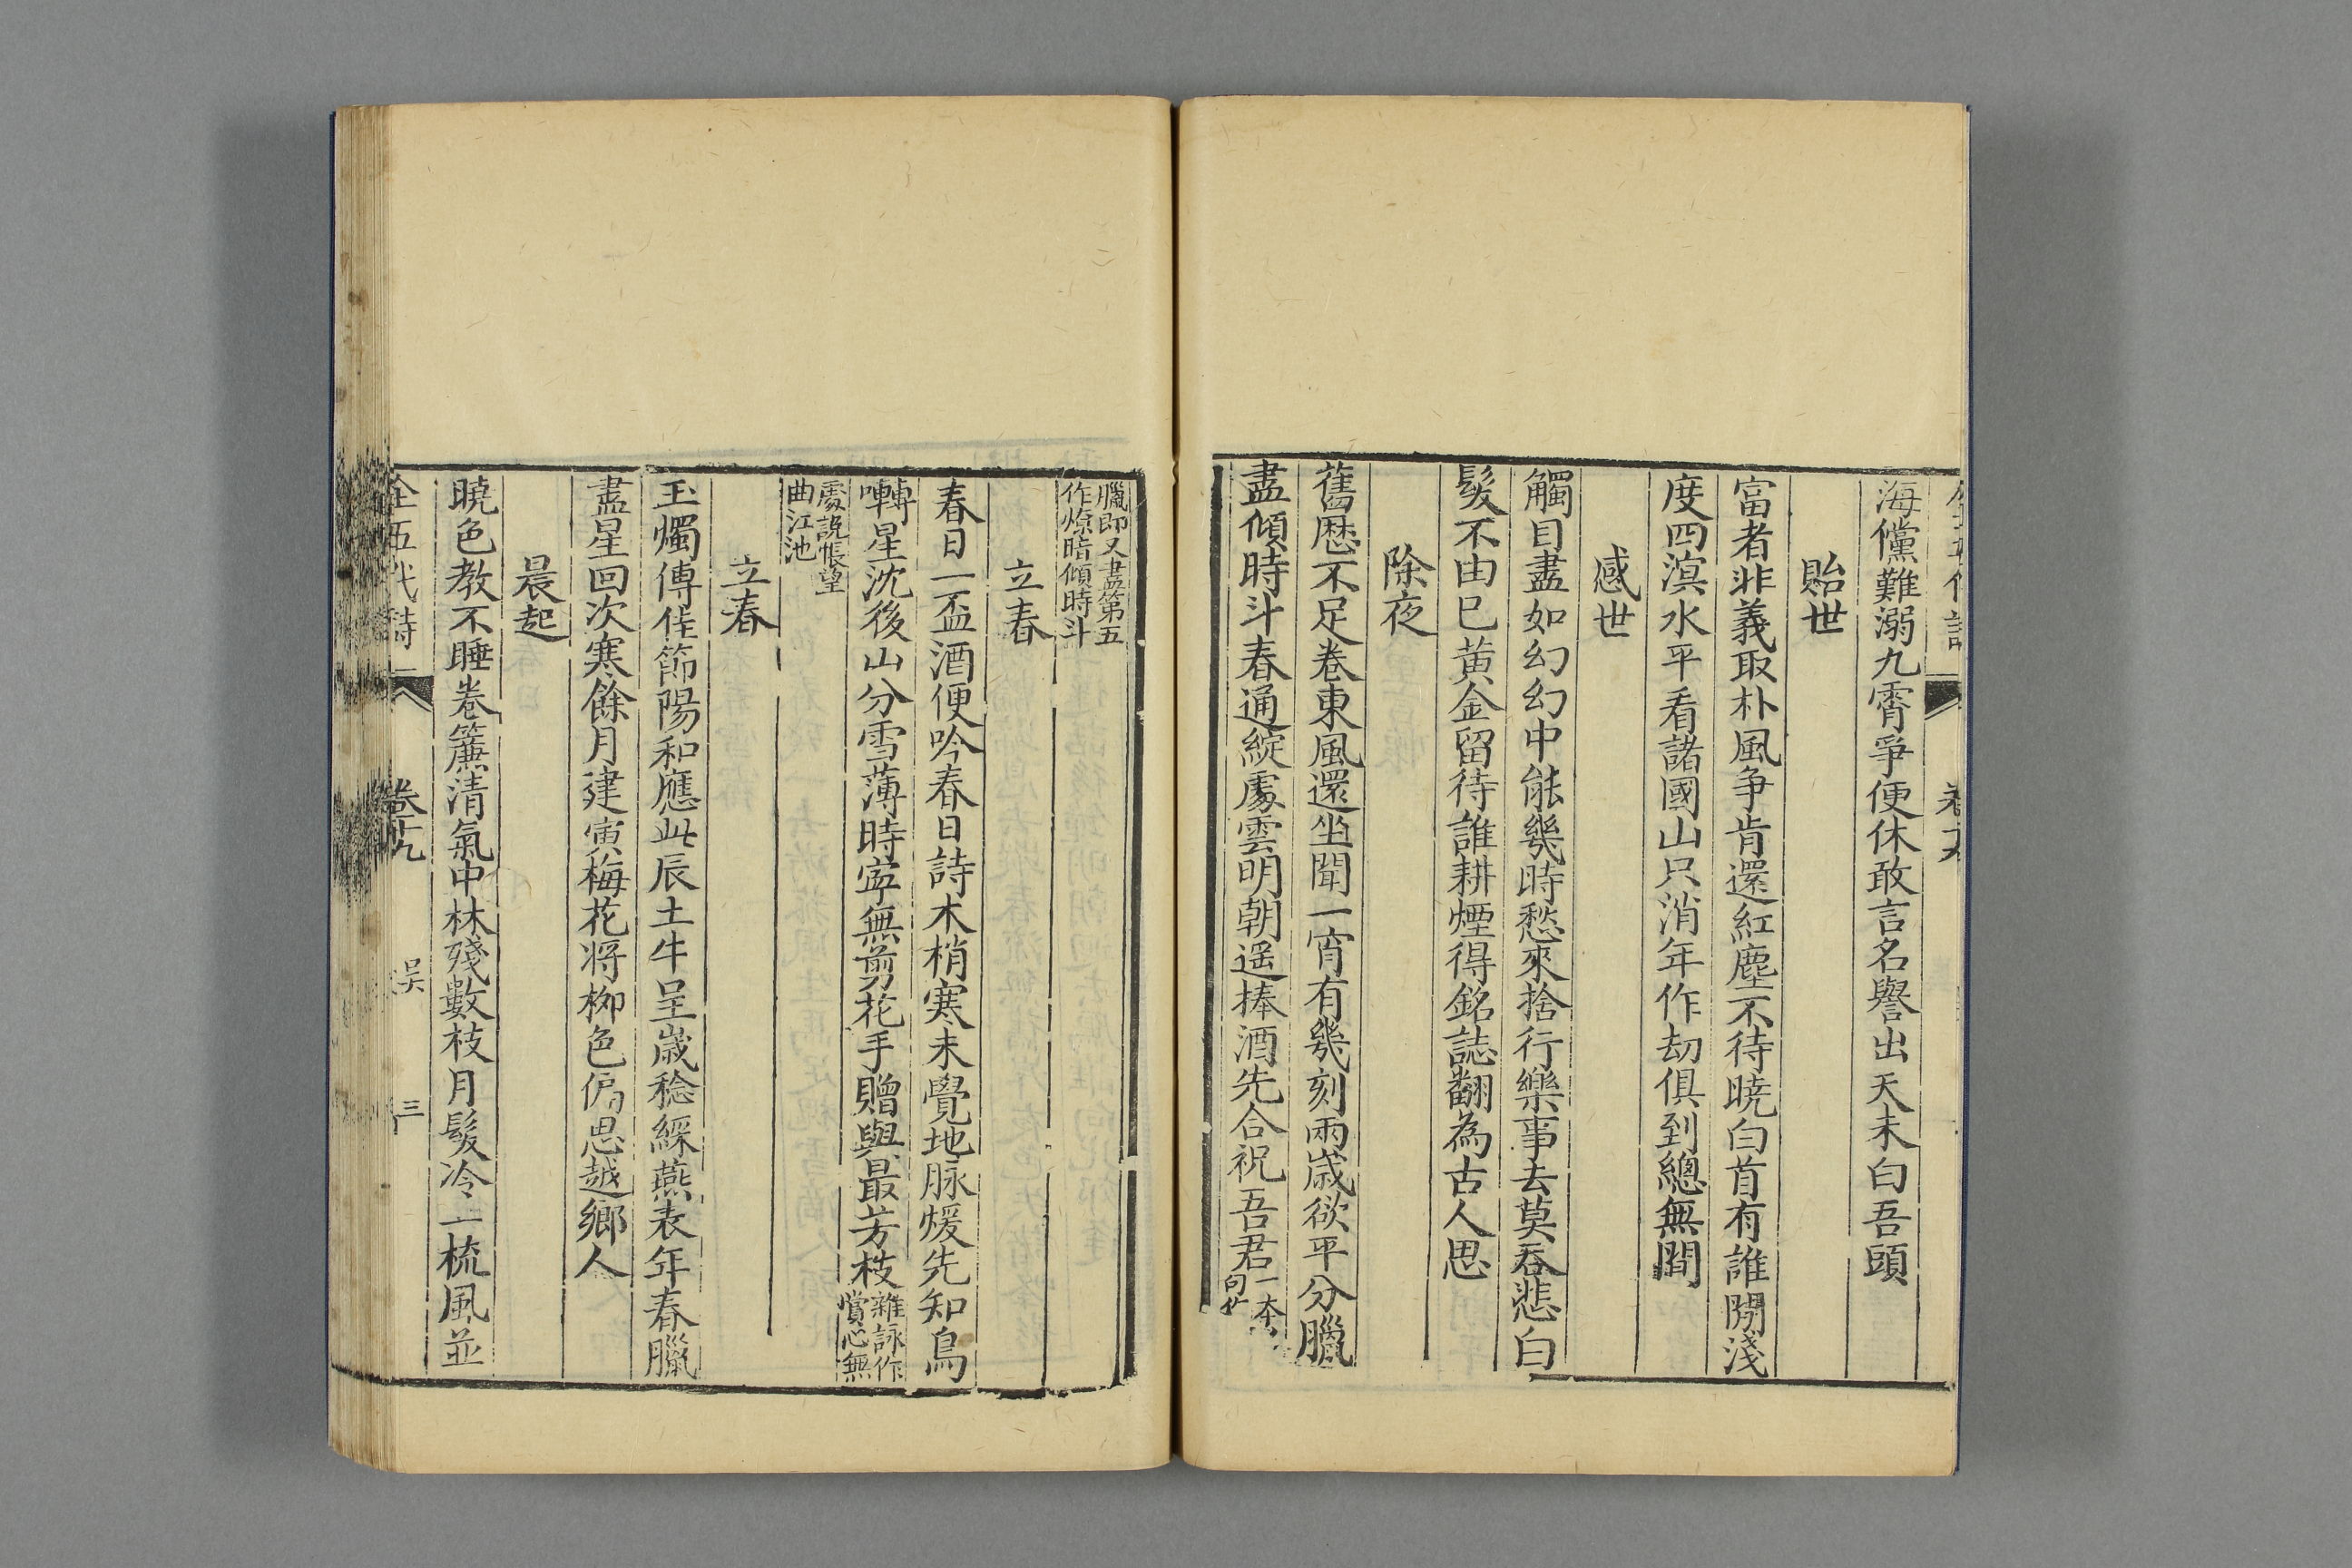 海儻難溺九霄爭便休敢言名譽出天未白吾頭
貽世
富者非義取朴風争肯還紅塵不待曉白首有誰閒淺
度四溟水平看諸國山只消年作刧俱到總無間
感世
觸目盡如幻幻中能幾時愁來捨行樂事去莫吞悲白
髮不由已黄金留待誰耕煙得銘誌翻為古人思
除夜
舊歴不足卷東風還坐聞一宵有幾刻兩歳欲平分臘
盡傾時斗春通綻處雲明朝遥捧酒先合祝吾君一本
句作
臘即又盡第五
作燎暗傾時斗
立春
春日一盃酒便吟春日詩木梢寒未覺地脉煖先知鳥
囀星沈後山分雪薄時寍無剪花手贈與最芳枝雜詠作
賞心無
處說悵望
曲江池
立春
玉燭傳佳節陽和應此辰土牛呈歳稔綵燕表年春臘
盡星回次寒餘月建寅梅花将栁色偏思越鄉人
晨起
曉色教不睡卷簾清氣中林殘數枝月髮冷一梳風並
全五代詩
卷十九
吴
三